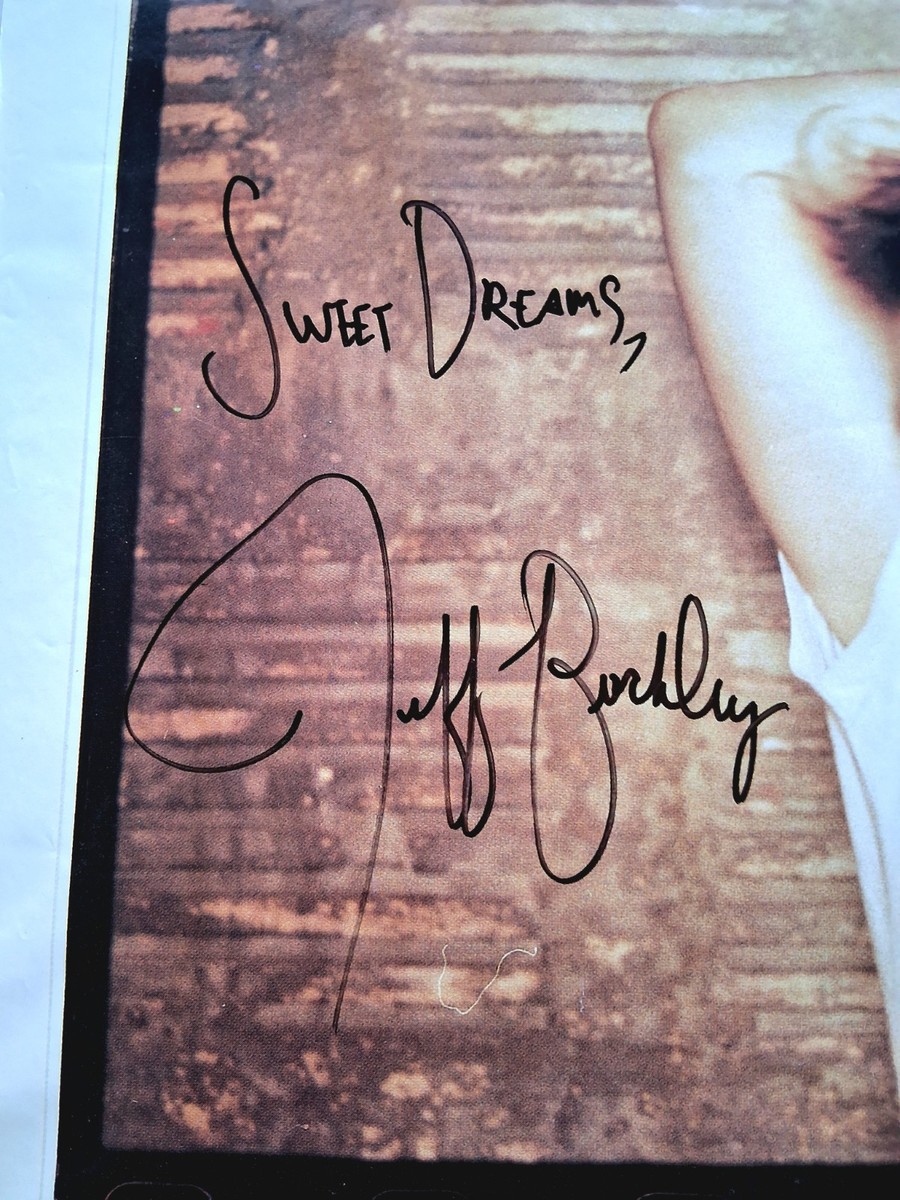 Sweet Dreams,
Jeff Buckley